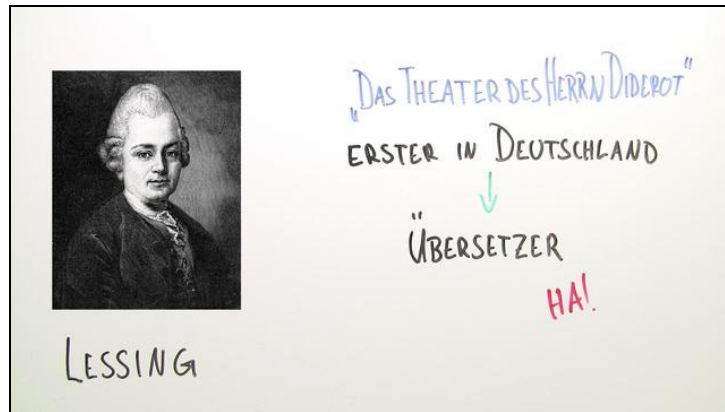 „DAS THEATER DES HERRN DIDEROT“
ERSTER IN DEUTSCHLAND
ÜBERSETZER
HA!
LESSING